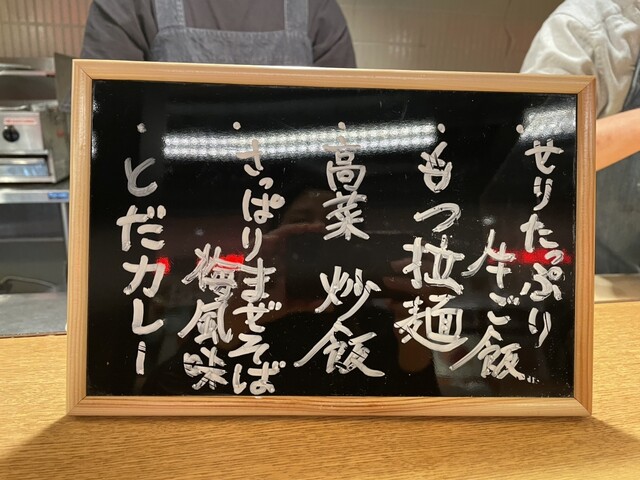 ・せりたっぷり
牛ご飯
・もつ拉麺
・高菜 炒飯
・さっぱりまぜそば
梅風味
・とだカレー